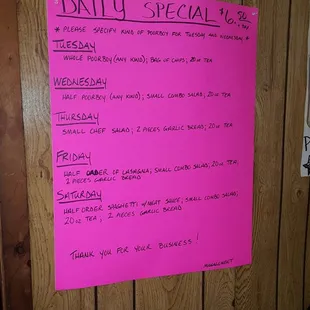 DAILY SPECIAL $6.86
* PLEASE SPECIFY KIND OF POORBOY FOR TUESDAY AND WEDNESDAY *
TUESDAY
WHOLE POORBOY (ANY KIND); BAG OF CHIPS; 20 oz TEA
WEDNESDAY
HALF POORBOY (ANY KIND); SMALL COMBO SALAD; 20 oz TEA
THURSDAY
SMALL CHEF SALAD; 2 PIECES GARLIC BREAD; 20 oz TEA
FRIDAY
HALF ORDER OF LASAGNA; SMALL COMBO SALAD; 20 oz TEA;
2 PIECES GARLIC BREAD
SATURDAY
HALF ORDER SPAGHETTI W/MEAT SAUCE; SMALL COMBO SALAD;
20 oz TEA; 2 PIECES GARLIC BREAD
THANK YOU FOR YOUR BUSINESS!
MANAGEMENT